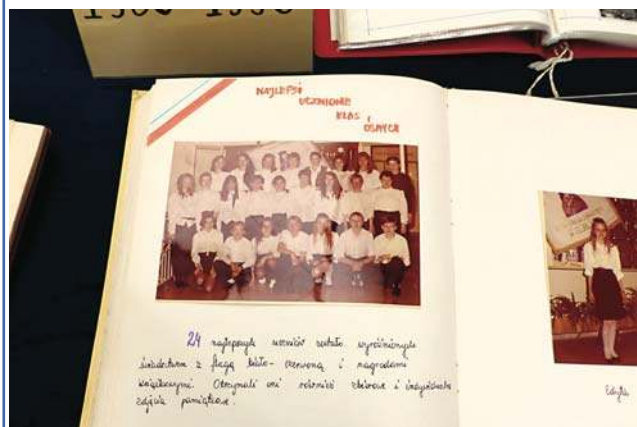 NAJLEPSI
UCZNIOWIE
KLAS
ÓSMYCH
24 najlepszych uczniów zostało wyróżnionych
świadectwem z flagą biało-czerwoną i nagrodami
książkowymi. Otrzymali oni również zbiorowe i indywidualne
zdjęcia pamiątkowe.
Edyta